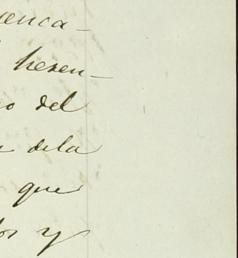 enca-
presen-
o del
dela
que
os y